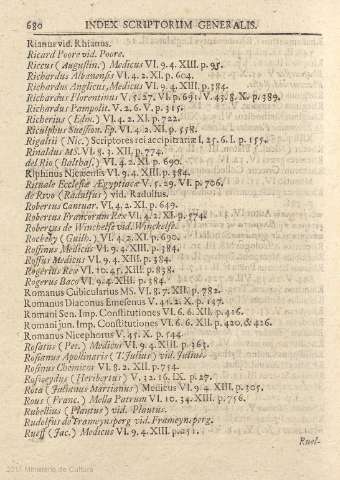 680 INDEX SCRIPTORUM GENERALIS.
Rianus vid. Rhianus.
Ricard Poore vid. Poore.
Riccus (Augustin.) Medicus VI. 9. 4. XIII. p. 95.
Richardus Albanensis VI. 4. 2. XI. p. 604.
Richardus Anglicus, Medicus VI. 9. 4. XIII. p. 384.
Richardus Florentinus V. 5. 27. VI. p. 691. V. 43. 8. X. p. 389.
Richardus Pampolit. V. 2. 6. V. p. 315.
Richerius (Edm.) VI. 4. 2. XI. p. 722.
Riculphus Suession. Ep. VI. 4. 2. XI. p. 558.
Rigaltii (Nic.) Scriptores rei accipitrariæ I. 25. 6. I. p. 155.
Rinaldus MS. VI. 8. 3. XII. p. 774.
del Rio (Balthas.) VI. 4. 2. XI. p. 690.
Riphinus Nicæensis VI. 9. 4. XIII. p. 384.
Rituale Ecclesiæ Ægyptiacæ V. 5. 29. VI. p. 706.
de Rivo (Radulfus) vid. Radulfus.
Robertus Cantuar. VI. 4. 2. XI. p. 649.
Robertus Francorum Rex VI. 4. 2. XI. p. 574.
Robertus de Winchelse vid. Winchelse.
Rockeby (Guilh.) VI. 4. 2. XI. p. 690.
Roffinus Medicus VI. 9. 4. XIII. p. 384.
Roffus Medicus VI. 9. 4. XIII. p. 384.
Rogerius Rex VI. 10. 45. XIII. p. 838.
Rogerus Baco VI. 9. 4. XIII. p. 384.
Romanus Cubicularius MS. VI. 8. 7. XII. p. 782.
Romanus Diaconus Emesenus V. 41. 2. X. p. 147.
Romani Sen. Imp. Constitutiones VI. 6. 6. XII. p. 416.
Romani jun. Imp. Constitutiones VI. 6. 6. XII. p. 420. & 426.
Romanus Nicephorus V. 45. X. p. 544.
Rosatus (Pet.) Medicus VI. 9. 4. XIII. p. 363.
Rosianus Apollinaris (T. Julius) vid. Julius.
Rosinus Chemicus VI. 8. 2. XII. p. 754.
Rosweydus (Heribertus) V. 32. 16. IX. p. 27.
Rota (Julianus Martianus) Medicus VI. 9. 4. XIII. p. 305.
Rous (Franc.) Mella Patrum VI. 10. 34. XIII. p. 756.
Rubellius (Plautus) vid. Plautus.
Rudolfus de Frameynsperg vid. Frameynsperg.
Rueff (Jac.) Medicus VI. 9. 4. XIII. p. 251.
Ruel-
2011 Ministerio de Cultura